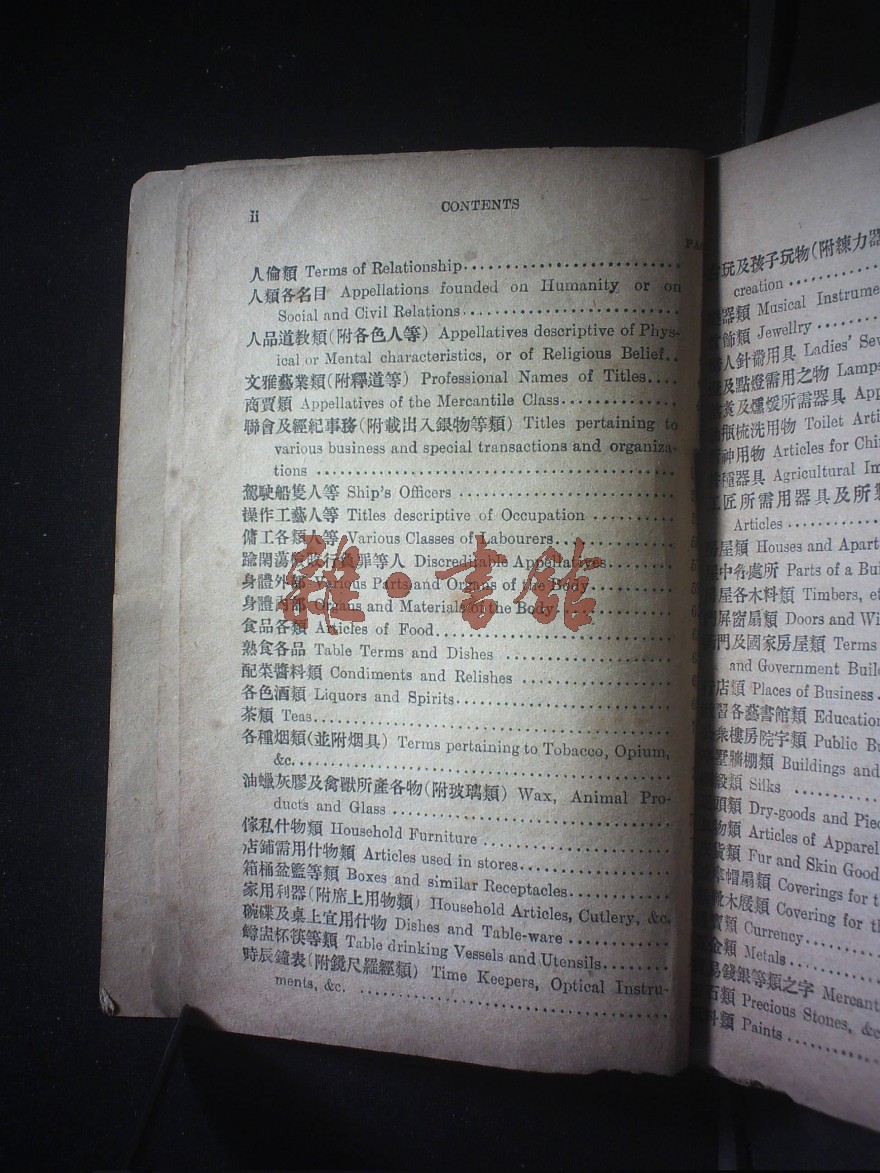 ii
CONTENTS
人倫類 Terms of Relationship
人類各名目 Appellations founded on Humanity or on
Social and Civil Relations
人品道教類(附各色人等) Appellatives descriptive of Phys-
ical or Mental characteristics, or of Religious Belief..
文雅藝業類(附釋道等) Professional Names of Titles....
商賈類 Appellatives of the Mercantile Class
聯會及經紀事務(附載出入銀物等類) Titles pertaining to
various business and special transactions and organiza-
tions
駕駛船隻人等 Ship's Officers
操作工藝人等 Titles descriptive of Occupation
傭工各類人等 Various Classes of Labourers
行負罪等人 Discreditable Appellatives
身體外部 Various Parts and Organs of the Body
身體內部 Organs and Materials of the Body
食品各類 Articles of Food
熟食各品 Table Terms and Dishes
配菜醬料類 Condiments and Relishes
各色酒類 Liquors and Spirits
茶類 Teas
各種烟類(並附烟具) Terms pertaining to Tobacco, Opium,
&c.
油蠟灰膠及禽獸所產各物(附玻璃類) Wax, Animal Pro-
ducts and Glass
傢私什物類 Household Furniture
店鋪需用什物類 Articles used in stores
箱桶盆籃等類 Boxes and similar Receptacles
家用利器(附席上用物類) Household Articles, Cutlery, &c.
碗碟及桌上宜用什物 Dishes and Table-ware
罇盅杯筷等類 Table drinking Vessels and Utensils
時辰鐘表(附鏡尺羅經類) Time Keepers, Optical Instru-
ments, &c.
雜·書館
玩及孩子玩物(附練力器
creation
器類 Musical Instrume
飾類 Jewellry
人針黹用具 Ladies' Sew
及點燈需用之物 Lamps
所需器具 App
瓶梳洗用物 Toilet Arti
神用物 Articles for Chin
種器具 Agricultural Im
工匠所需用器具及所
Articles
屋類 Houses and Apart
中各處所 Parts of a Bui
屋各木料類 Timbers, et
屏窗扇類 Doors and Wi
門及國家房屋類 Terms
and Government Buil
店類 Places of Business
習各藝書館類 Education
樓房院宇類 Public Bu
墅牆棚類 Buildings and
類 Silks
頭類 Dry-goods and Piec
物類 Articles of Apparel
類 Fur and Skin Good
帽扇類 Coverings for t
靴木屐類 Covering for th
類 Currency
金類 Metals
易錢銀等類之字 Mercant
石類 Precious Stones, &c
料類 Paints